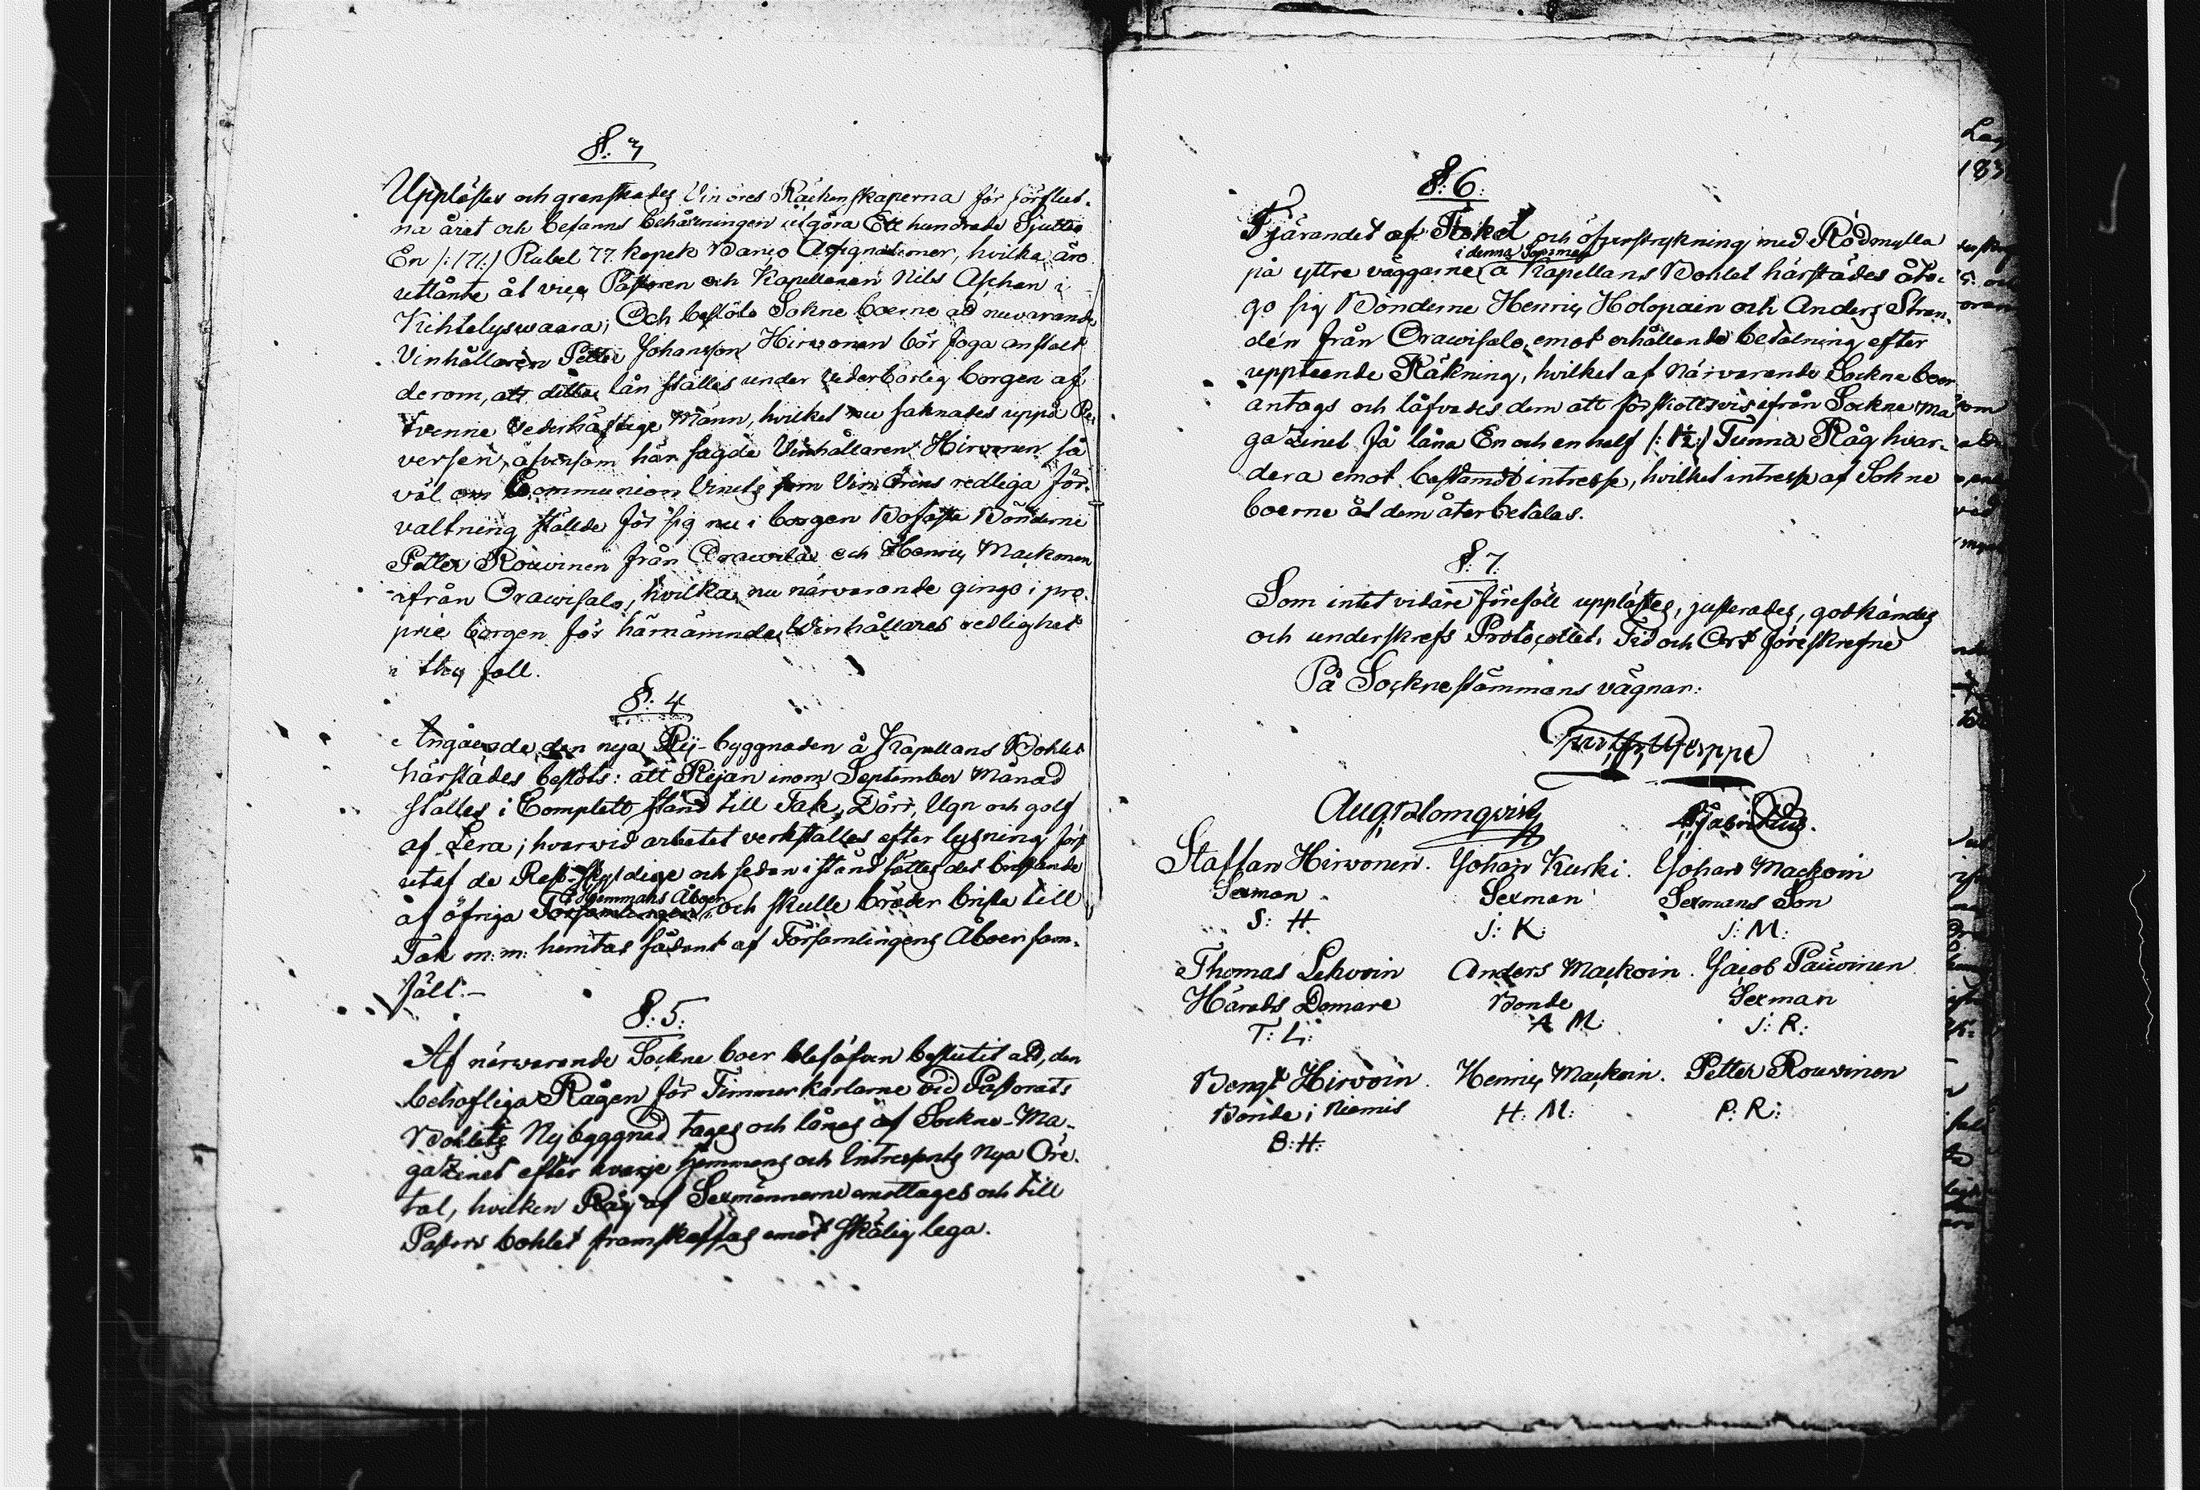 §: 3
Upplästes och granskades Vin öres Räkenskaperna för förflut-
na året och befanns behållningen utgöra Ett hundrade Sjuttio
En /:171:/ Rubel 77 kopek Banco Assignationer, hvilka äro
utlånte åt vice Pastoren och Kapellanen Nils Aschan i
Kihtelyswaara; Och beslöto Sokne boerne att nuvarande
Vinhållaren Petter Johansson Hirvonen bör foga anstalt
derom, att detta lån ställes under vederbörlig borgen af
tvenne Vederhäftige Männ, hvilket nu saknades uppå Re-
versen, äfvensom här sagde Vinhållaren Hirvonen så
väl om Communion Vinets som Vin Örens redliga för-
valtning ställde för sig nu i borgen Bofaste Bönderne
Petter Rouvinen från Orawilax och Henric Mackonen
ifrån Orawisalo, hvilka nu närvarande gingo i pro-
prie borgen för härnämnde Winhållares redlighet
i thy fall.
§: 4
Angående den nya Rij-byggnaden å Kapellans Bohlet
härstädes beslöts: att Rijan inom September Månad
ställes i Complett stånd till Tak, Dörr, Ugn och golf
af Lera; hvarvid arbetet verkställes efter lysning förs
utaf de Rest-skyldige och sedan i stånd sättes det bristande
af öfriga Hemmans Åboer, och skulle bräder brista till
Tak m: m: hemtas sådant af Församlingens Åboer sam-
fält.-
§: 5:
Af närwarande Sockne boer blef äfven beslutit att, den
behöfliga Rågen för Timmerkarlarne vid Pastorats
Bohlets Nybyggnad tages och lånes af Sockne-Ma-
gatzinet efter hvarje hemmans och Intressents Nya Öre-
tal, hvilken Råg af Sexmännerne emottages och till
Pastors bohlet framskaffas emot skälig lega.
§: 6:
Tjärandet af Taket och öfverstrykning med Rödmylla
i denna Sommar
på yttre väggarne å Kapellans Bohlet härstädes åto-
go sig Bönderne Henric Holopain och Anders Stran-
dén från Orawisalo, emot erhållande betalning efter
uppteende Räkning, hvilket af Närvarande Sockne boer
antogs och låfvades dem att förskottsvis ifrån Sockne Ma
gazinet få låna En och en half /: 1½:/ Tunna Råg hvar-
dera emot bestämdt intresse, hvilket intresse af Sokne
boerne åt dem återbetalas.
§: 7.
Som intet vidare föreföll upplästes, justerades, godkändes
och underskrefs Protocollet. Tid och Ort föreskrefne
På Sockne stämmans vägnar:
Aug Blomqvist
Staffan Hirvonen. Johan Kurki. Johan Mackoin
Sexman. Sexman Sexmans Son
S: H. J: K: J: M:
Thomas Lehvoin Anders Mackoin. Jacob Pauvinen
Härads Domare Bonde Sexman
T: L: A M: J: R:
Bengt Hirvoin. Henric Mackoin. Petter Rouvinen
Bonde i Niemis H: M: P: R:
B: H: